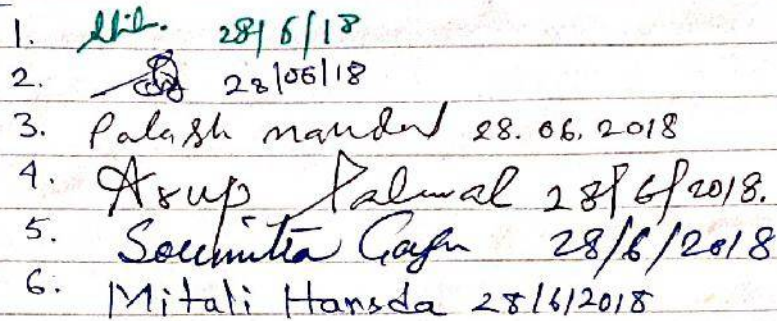 1. 28/6/18
2. 28/06/18
3. Palash mandal 28.06.2018
4. Arup 28/6/2018.
5. Soumitra 28/6/2018
6. Mitali Hansda 28/6/2018